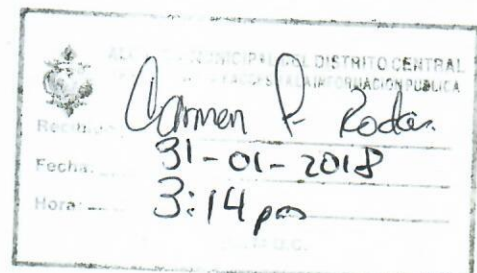 ALCALDIA MUNICIPAL DEL DISTRITO CENTRAL
ACCESO A LA INFORMACION PUBLICA
Recibido: Carmen P. Rodas.
Fecha: 31-01-2018
Hora: 3:14 pm